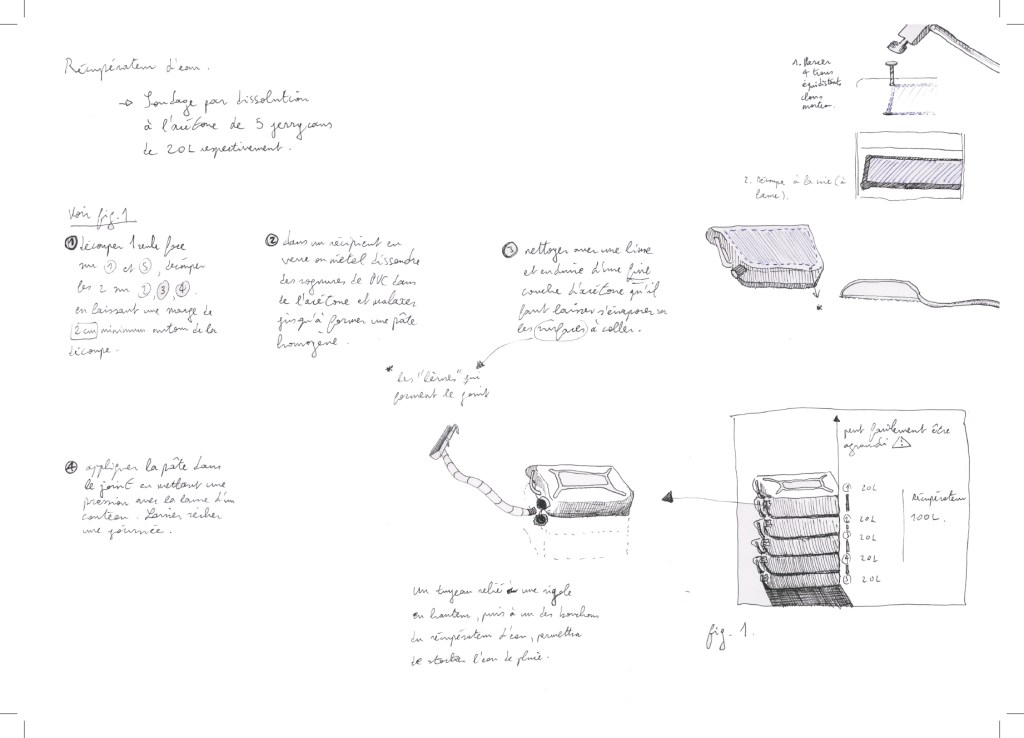 Récupérateur d'eau.
→ Soudage par dissolution
à l'acétone de 5 jerrycans
de 20L respectivement.
Voir fig.1
① découper 1 seule face
sur ① et ⑤, découper
les 2 sur ②,③,④.
en laissant une marge de
2cm minimum autour de la
découpe.
② dans un récipient en
verre ou métal dissoudre
des rognures de PVC dans
de l'acétone et malaxer
jusqu'à former une pâte
homogène.
③ nettoyer avec une lime
et enduire d'une fine
couche d'acétone qu'il
faut laisser s'évaporer sur
les surfaces à coller.
* les "lèvres" qui
forment le joint
④ appliquer la pâte dans
le joint en mettant une
pression avec la lame d'un
couteau. Laisser sécher
une journée.
Un tuyeau relié à une rigole
en hauteur, puis à un des bouchons
du récupérateur d'eau, permettra
de stocker l'eau de pluie.
1. Percer
4 trous
équidistants
dans
morceau.
2. Découpe à la scie (à
lame).
*
peut facilement être
agrandi ⚠
① 20L
② 20L
③ 20L
④ 20L
⑤ 20L
récupérateur
100L.
fig. 1.